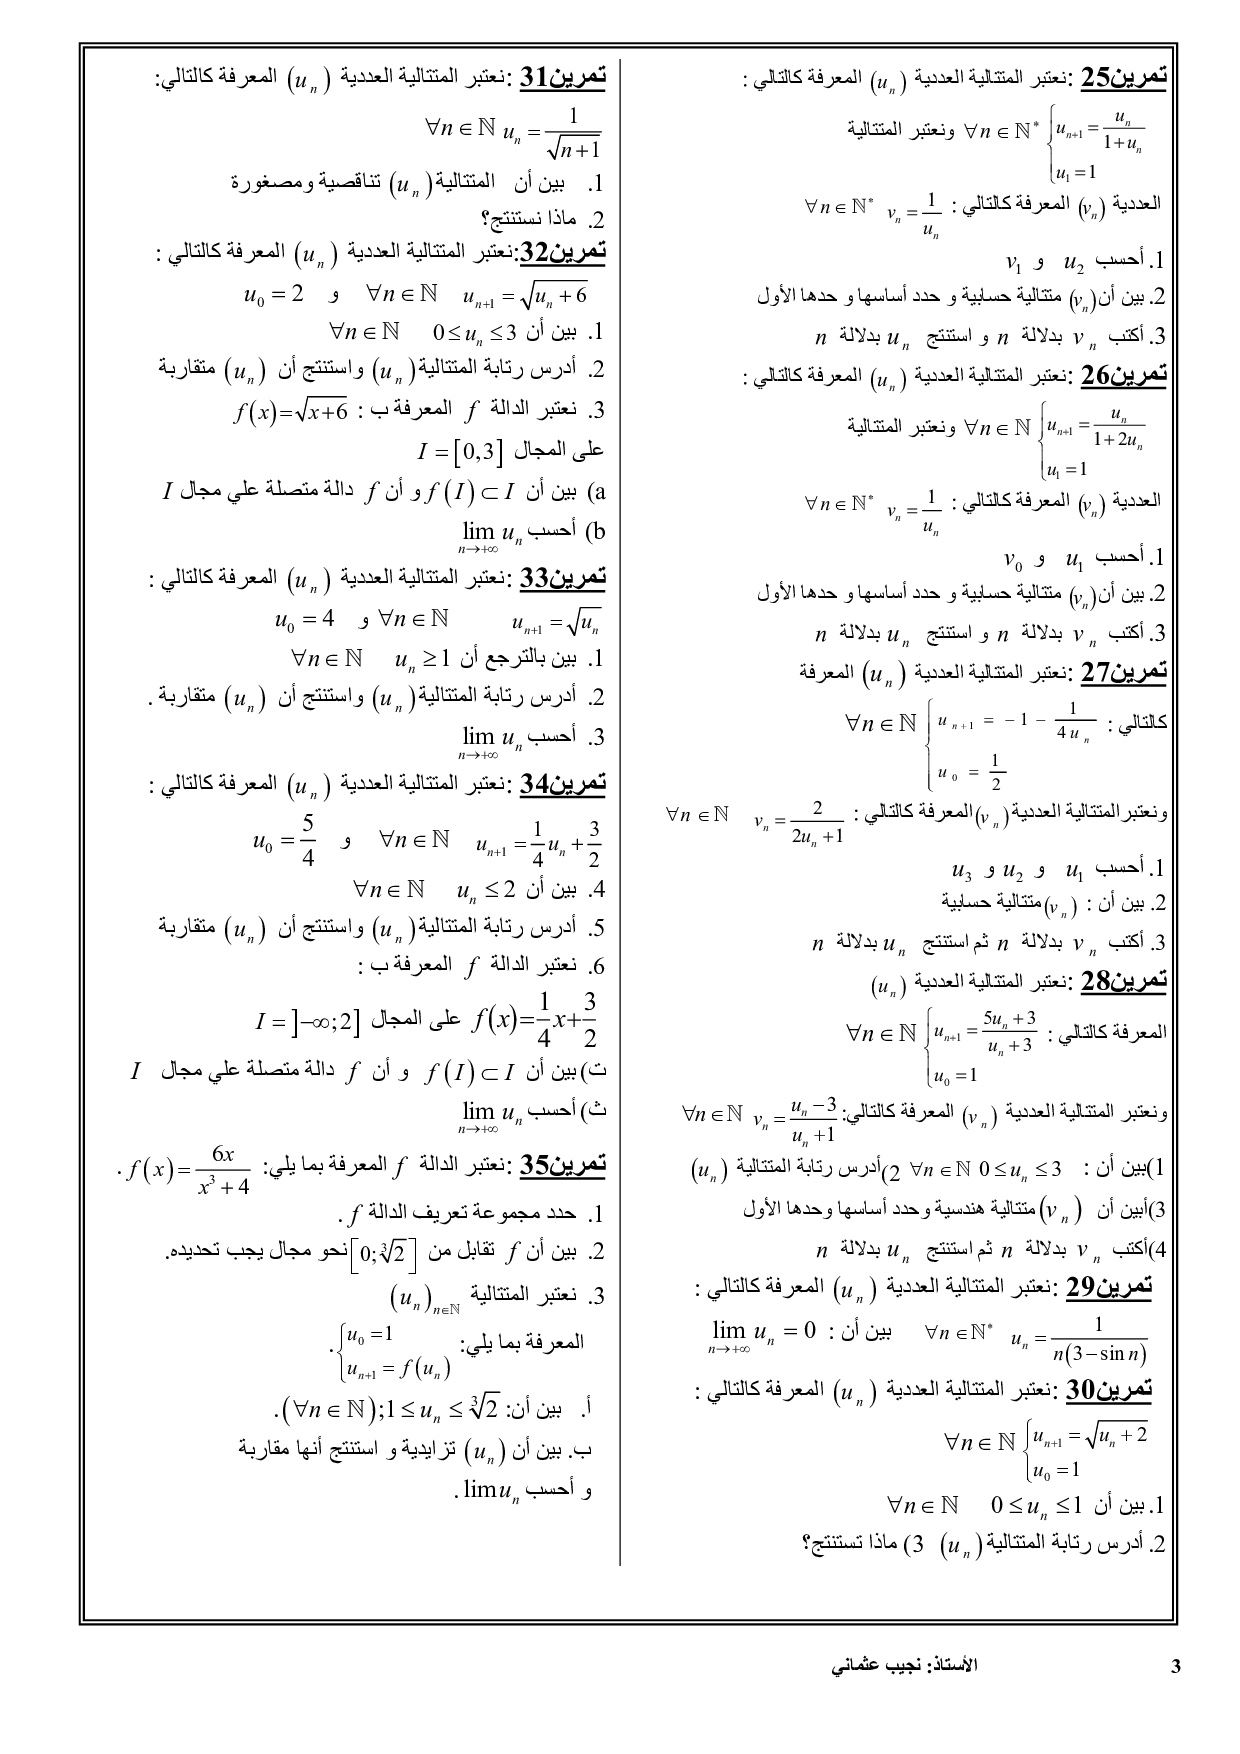 تمرين25 :نعتبر المتتالية العددية (u_n) المعرفة كالتالي :
{ u_{n+1} = u_n/(1+u_n) ; u_1 = 1 } ∀n ∈ ℕ* ونعتبر المتتالية
العددية (v_n) المعرفة كالتالي : v_n = 1/u_n ∀n ∈ ℕ*
1. أحسب u_2 و v_1
2. بين أن (v_n) متتالية حسابية و حدد أساسها و حدها الأول
3. أكتب v_n بدلالة n و استنتج u_n بدلالة n
تمرين26 :نعتبر المتتالية العددية (u_n) المعرفة كالتالي :
{ u_{n+1} = u_n/(1+2u_n) ; u_1 = 1 } ∀n ∈ ℕ ونعتبر المتتالية
العددية (v_n) المعرفة كالتالي : v_n = 1/u_n ∀n ∈ ℕ*
1. أحسب u_1 و v_0
2. بين أن (v_n) متتالية حسابية و حدد أساسها و حدها الأول
3. أكتب v_n بدلالة n و استنتج u_n بدلالة n
تمرين27 :نعتبر المتتالية العددية (u_n) المعرفة
كالتالي : { u_{n+1} = −1 − 1/(4u_n) ; u_0 = 1/2 } ∀n ∈ ℕ
ونعتبرالمتتالية العددية (v_n) المعرفة كالتالي : v_n = 2/(2u_n+1) ∀n ∈ ℕ
1. أحسب u_1 و u_2 و u_3
2. بين أن : (v_n) متتالية حسابية
3. أكتب v_n بدلالة n ثم استنتج u_n بدلالة n
تمرين28 :نعتبر المتتالية العددية (u_n)
المعرفة كالتالي : { u_{n+1} = (5u_n+3)/(u_n+3) ; u_0 = 1 } ∀n ∈ ℕ
ونعتبر المتتالية العددية (v_n) المعرفة كالتالي: v_n = (u_n−3)/(u_n+1) ∀n ∈ ℕ
1)بين أن : 0 ≤ u_n ≤ 3 ∀n ∈ ℕ 2)أدرس رتابة المتتالية (u_n)
3)أبين أن (v_n) متتالية هندسية وحدد أساسها وحدها الأول
4)أكتب v_n بدلالة n ثم استنتج u_n بدلالة n
تمرين29 :نعتبر المتتالية العددية (u_n) المعرفة كالتالي :
u_n = 1/(n(3−sin n)) ∀n ∈ ℕ* بين أن : lim_{n→+∞} u_n = 0
تمرين30 :نعتبر المتتالية العددية (u_n) المعرفة كالتالي :
{ u_{n+1} = √(u_n+2) ; u_0 = 1 } ∀n ∈ ℕ
1. بين أن 0 ≤ u_n ≤ 1 ∀n ∈ ℕ
2. أدرس رتابة المتتالية (u_n) 3) ماذا تستنتج؟
تمرين31 :نعتبر المتتالية العددية (u_n) المعرفة كالتالي:
u_n = 1/√(n+1) ∀n ∈ ℕ
1. بين أن المتتالية (u_n) تناقصية ومصغورة
2. ماذا نستنتج؟
تمرين32:نعتبر المتتالية العددية (u_n) المعرفة كالتالي :
u_{n+1} = √(u_n+6) ∀n ∈ ℕ و u_0 = 2
1. بين أن 0 ≤ u_n ≤ 3 ∀n ∈ ℕ
2. أدرس رتابة المتتالية (u_n) واستنتج أن (u_n) متقاربة
3. نعتبر الدالة f المعرفة ب : f(x)=√(x+6)
على المجال I = [0,3]
a) بين أن f(I) ⊂ I و أن f دالة متصلة علي مجال I
b) أحسب lim_{n→+∞} u_n
تمرين33 :نعتبر المتتالية العددية (u_n) المعرفة كالتالي :
u_{n+1} = √u_n ∀n ∈ ℕ و u_0 = 4
1. بين بالترجع أن u_n ≥ 1 ∀n ∈ ℕ
2. أدرس رتابة المتتالية (u_n) واستنتج أن (u_n) متقاربة .
3. أحسب lim_{n→+∞} u_n
تمرين34 :نعتبر المتتالية العددية (u_n) المعرفة كالتالي :
u_{n+1} = 1/4 u_n + 3/2 ∀n ∈ ℕ و u_0 = 5/4
4. بين أن u_n ≤ 2 ∀n ∈ ℕ
5. أدرس رتابة المتتالية (u_n) واستنتج أن (u_n) متقاربة
6. نعتبر الدالة f المعرفة ب :
f(x)= 1/4 x + 3/2 على المجال I = ]−∞;2]
ت) بين أن f(I) ⊂ I و أن f دالة متصلة علي مجال I
ث) أحسب lim_{n→+∞} u_n
تمرين35 :نعتبر الدالة f المعرفة بما يلي: f(x) = 6x/(x³+4) .
1. حدد مجموعة تعريف الدالة f .
2. بين أن f تقابل من [0;∛2] نحو مجال يجب تحديده.
3. نعتبر المتتالية (u_n)_{n∈ℕ}
المعرفة بما يلي: { u_0 = 1 ; u_{n+1} = f(u_n) } .
أ. بين أن: (∀n ∈ ℕ);1 ≤ u_n ≤ ∛2 .
ب. بين أن (u_n) تزايدية و استنتج أنها مقاربة
و أحسب lim u_n .
الأستاذ: نجيب عثماني
3